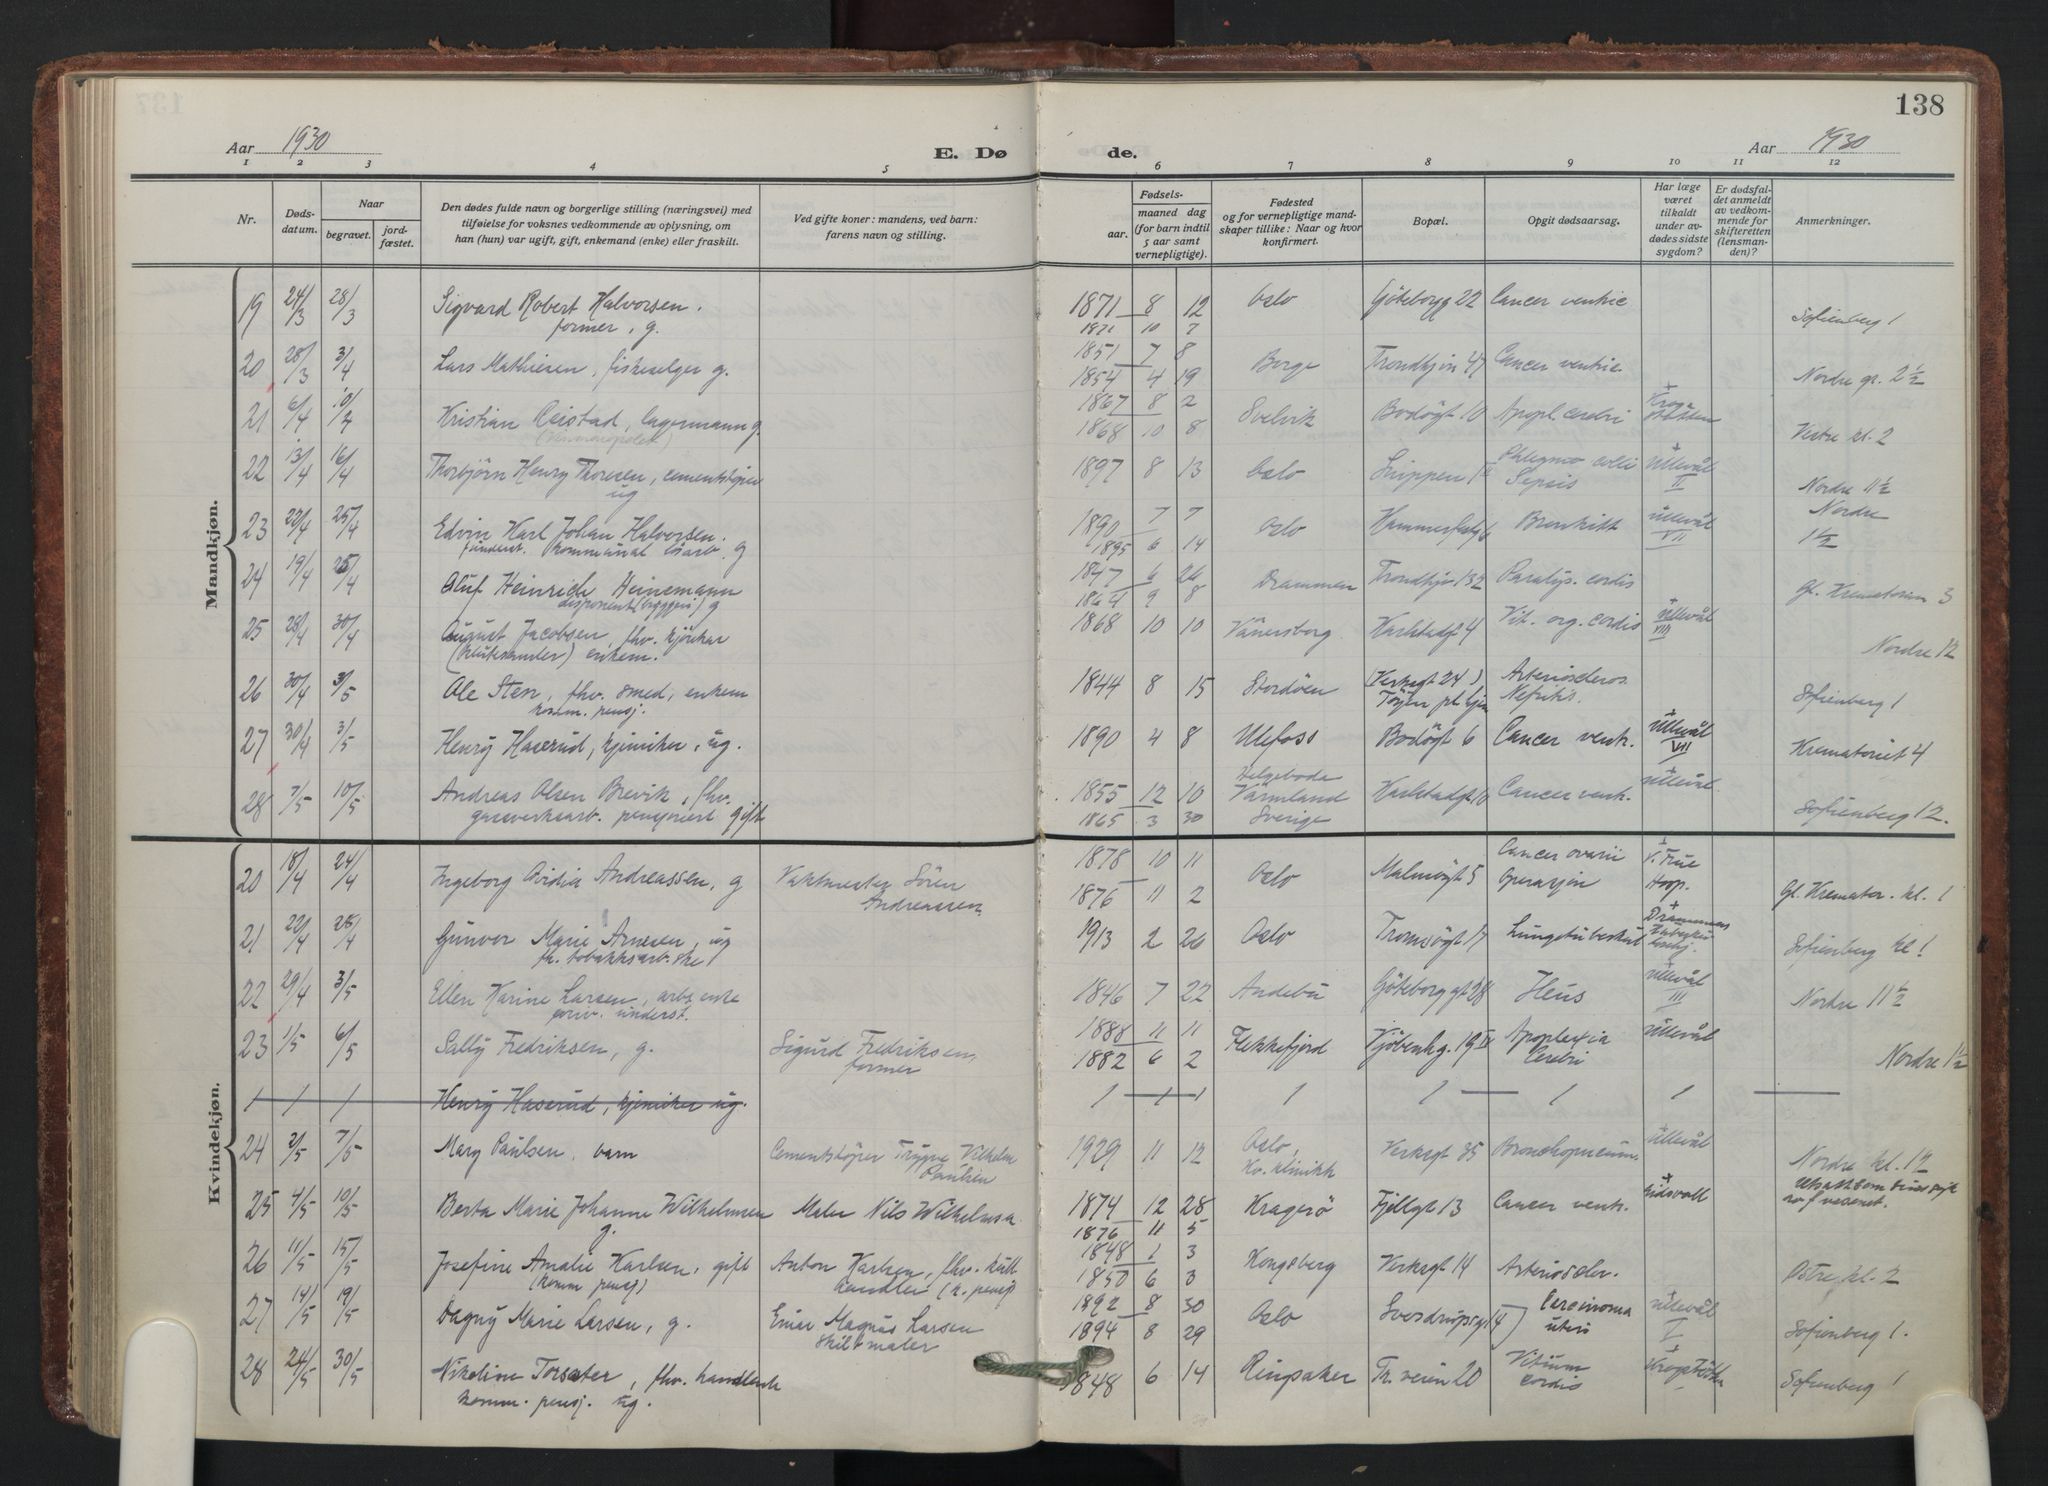 138
Aar 1930
E. Dø
de.
Aar 1930
1 2 3 4 5 6 7 8 9 10 11 12
Nr.
Døds-
datum.
Naar
begravet.
jord-
fæstet.
Den dødes fulde navn og borgerlige stilling (næringsvei) med
tilføielse for voksnes vedkommende av oplysning, om
han (hun) var ugift, gift, enkemand (enke) eller fraskilt.
Ved gifte koner: mandens, ved barn:
farens navn og stilling.
Fødsels-
aar.
maaned dag
(for barn indtil
5 aar samt
vernepligtige).
Fødested
og for vernepligtige mand-
skaper tillike: Naar og hvor
konfirmert.
Bopæl.
Opgit dødsaarsag.
Har læge
været
tilkaldt
under av-
dødes sidste
sygdom?
Er dødsfal-
det anmeldt
av vedkom-
mende for
skifteretten
(lensman-
den)?
Anmerkninger.
Mandkjøn.
19 24/3 28/3 Sigvard Robert Halvorsen. 1871 8 12 Oslo Göteborgg 22 Cancer ventric Sofienberg 1
former, g. 1871 10 7
20 28/3 3/4 Lars Mathiesen, fiskeselger g. 1851 7 8 Borge Trondhjm 47 Cancer ventric. Nordre gr. 2 1/2
1854 4 19
21 6/4 10/4 Kristian Reistad, lagermann g. 1867 8 2 Svelvik Bodögt 10 Apopl. cerebri Vestre kl. 2
1868 10 8
22 13/4 16/4 Thorbjörn Henry Thoresen, cementstöper 1897 8 13 Oslo Phlegmo colli Ullevål Nordre 11 1/2
ug Sepsis II
23 22/4 25/4 Edvin Karl Johan Halvorsen. 1892 7 7 Oslo Bronkitt Ullevål Nordre
kommunal g 1895 6 14 VII 1 1/2
24 19/4 25/4 Oluf Heinrich Heinemann 1847 6 26 Drammen Trondhjm 132 Paralys. cordis Gl. Krematorium 3
disponent (bryggeri) g 1864 9 8
25 28/4 30/4 August Jacobsen, fhv. kjörekar 1868 10 10 Vänersborg Karlstadgt 4 Vit. org. cordis Ullevål VIII Nordre 12
enkem.
26 30/4 3/5 Ole Sten, fhv. smed, enkem 1844 8 15 Stordöen (Verksgt 24) Arterioscleros. Sofienberg 1
komm. pensj. Töyen pl.hjm Nefritis.
27 30/4 3/5 Henry Haserud, kjemiker, ug. 1890 4 8 Ulefoss Bodögt 6 Cancer ventr. Ullevål VII Krematoriet 4
28 7/5 10/5 Andreas Olsen Brevik, fhv. 1855 12 10 Helgeboda Värmland Karlstadgt 10 Cancer ventr. Ullevål Sofienberg 12.
gassverksarb. pensjonert gift 1865 3 30 Sverige
Kvindekjøn.
20 18/4 24/4 Ingeborg Ovidia Andreassen, g Vaktmester Sören 1878 10 11 Oslo Malmögt 5 Cancer ovarii V. Frue Gl. Kremator. kl. 1
Andreassen 1876 11 2 Operasjon Hosp.
21 22/4 28/4 Gunvor Marie Arnesen, ug 1913 2 26 Oslo Tromsögt 17 Lungetuberkul Drammens Sofienberg kl 1
fh. tobakksarb.ske
22 29/4 3/5 Ellen Karine Larsen, arb. enke 1846 7 22 Andebu Göteborggt 28 Ileus Ullevål III Nordre 11 1/2
priv. underst.
23 1/5 6/5 Sally Fredriksen, g. Sigurd Fredriksen, 1888 11 11 Flekkefjord Kjöbenhg. 19 II Apoplexia Ullevål Nordre 1 1/2
former 1882 6 2 Cerebri
Henry Haserud, kjemiker ug.
24 2/5 7/5 Mary Paulsen, barn Cementstöper Trygve Vilhelm 1929 11 12 Oslo, Verksgt 35 Bronchopneum. Ullevål Nordre kl. 12
Paulsen Kv. klinikk
25 4/5 10/5 Berta Marie Johanne Wilhelmsen Maler Nils Wilhelmsen 1874 12 28 Kragerö Fjellgt 13 Cancer ventr. Eidsvoll
g. 1876 11 5
26 11/5 15/5 Josefine Amalie Karlsen, gift Anton Karlsen, fhv. kull 1848 1 3 Kongsberg Verksgt 14 Arterioscler. Östre kl. 2
(komm pensj) handler (k. pensj) 1850 6 3
27 14/5 19/5 Dagny Marie Larsen, g. Einar Magnus Larsen 1892 8 30 Oslo Sverdrupsgt 14 Carcinoma Ullevål Sofienberg 1.
Skiltmaler 1894 8 29 uteri I
28 24/5 30/5 Nikoline Torsæter, fhv. handlersk 1848 6 14 Ringsaker Th. veien 20 Vitium Krogstötten Sofienberg 1
komm. pensj. ug. cordis